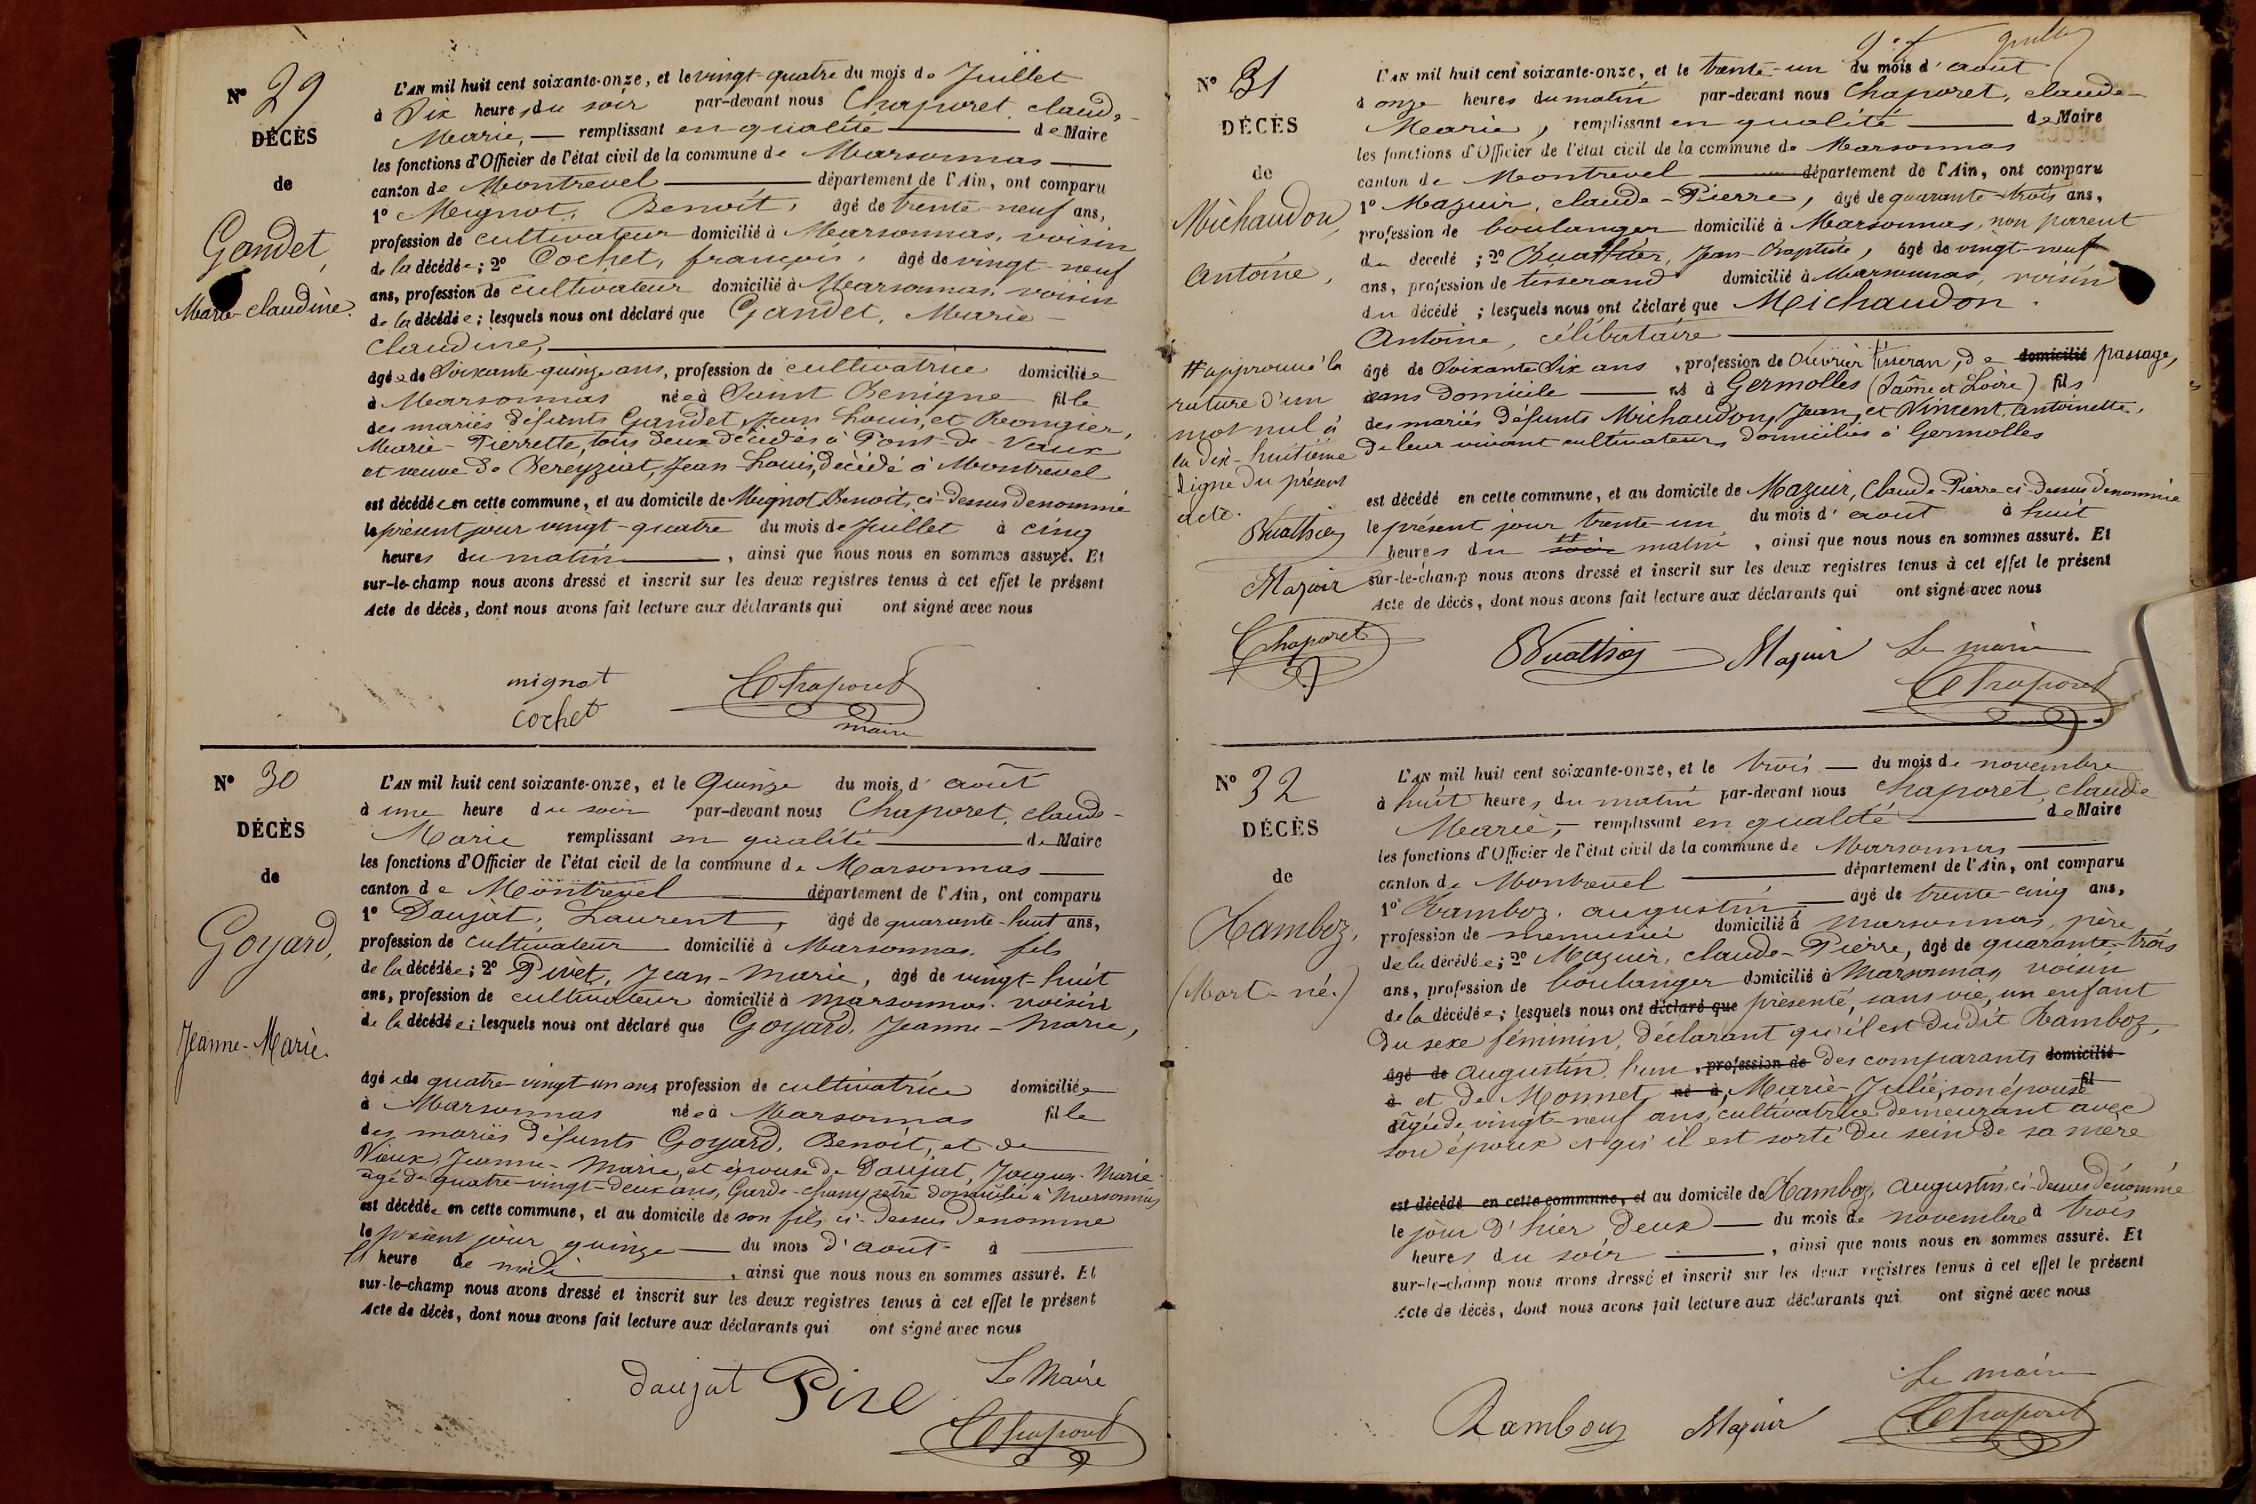 N° 29
DÉCÈS
de
Gandet,
Marie-claudine.
L'AN mil huit cent soixante-onze, et le vingt-quatre du mois de Juillet
à Six heures du soir par-devant nous Chaporet, claude-
Marie, — remplissant en qualité — de Maire
les fonctions d'Officier de l'état civil de la commune de Marsonnas —
canton de Montrevel — département de l'Ain, ont comparu
1° Mignot, Benoît, âgé de trente-neuf ans,
profession de cultivateur domicilié à Marsonnas, voisin
de la décédée; 2° Cochet, françois, âgé de vingt-neuf
ans, profession de cultivateur domicilié à Marsonnas, voisin
de la décédée; lesquels nous ont déclaré que Gandet, Marie-
Claudine, —
âgée de Soixante-quinze ans, profession de cultivatrice domiciliée
à Marsonnas née à Saint Benigne fille
des mariés défunts Gandet, Jean Louis, et Rongier,
Marie-Pierrette, tous deux décédés à Pont-de-Vaux
et veuve de Dereyziat, Jean-Louis, décédé à Montrevel
est décédée en cette commune, et au domicile de Mignot Benoît, ci-dessus dénommé
le présent jour vingt-quatre du mois de Juillet à cinq
heures du matin —, ainsi que nous nous en sommes assuré. Et
sur-le-champ nous avons dressé et inscrit sur les deux registres tenus à cet effet le présent
Acte de décès, dont nous avons fait lecture aux déclarants qui ont signé avec nous
mignot
Cochet
Chaporet
maire
N° 30
DÉCÈS
de
Goyard,
Jeanne-Marie.
L'AN mil huit cent soixante-onze, et le Quinze du mois d'août
à une heure du soir par-devant nous Chaporet, claude-
Marie remplissant en qualité — de Maire
les fonctions d'Officier de l'état civil de la commune de Marsonnas —
canton de Montrevel — département de l'Ain, ont comparu
1° Daujat, Laurent, âgé de quarante-huit ans,
profession de cultivateur domicilié à Marsonnas, fils
de la décédée; 2° Piret, Jean-Marie, âgé de vingt-huit
ans, profession de cultivateur domicilié à Marsonnas, voisin
de la décédée; lesquels nous ont déclaré que Goyard, Jeanne-Marie,
âgée de quatre-vingt-un ans profession de cultivatrice domiciliée
à Marsonnas née à Marsonnas fille
des mariés défunts Goyard, Benoît, et de
Vieux, Jeanne-Marie, et épouse de Daujat, Jacques-Marie
âgé de quatre-vingt-deux ans, Garde-champêtre domicilié à Marsonnas
est décédée en cette commune, et au domicile de son fils ci-dessus dénommé
le présent jour quinze — du mois d'août à —
l' heure de midi —, ainsi que nous nous en sommes assuré. Et
sur-le-champ nous avons dressé et inscrit sur les deux registres tenus à cet effet le présent
Acte de décès, dont nous avons fait lecture aux déclarants qui ont signé avec nous
Le Maire
Daujat
Chaporet
N° 31
DÉCÈS
de
Michaudon,
Antoine,
L'AN mil huit cent soixante-onze, et le trente-un du mois d'août
à onze heures du matin par-devant nous Chaporet, claude-
Marie, remplissant en qualité — de Maire
les fonctions d'Officier de l'état civil de la commune de Marsonnas
canton de Montrevel — département de l'Ain, ont comparu
1° Mazuir, claude-Pierre, âgé de quarante-trois ans,
profession de boulanger domicilié à Marsonnas, non parent
du décédé; 2° Buathier, Jean-Baptiste, âgé de vingt-neuf
ans, profession de tisserand domicilié à Marsonnas, voisin
du décédé; lesquels nous ont déclaré que Michaudon,
Antoine, célibataire —
âgé de Soixante Six ans, profession de ouvrier tisseran, de domicilié passage,
sans domicile — né à Germolles (Saône et Loire) fils
des mariés défunts Michaudon, Jean, et Vincent, Antoinette,
de leur vivant cultivateurs domiciliés à Germolles
est décédé en cette commune, et au domicile de Mazuir, Claude-Pierre ci-dessus dénommé
le présent jour trente-un du mois d'août à huit
heures du soir matin, ainsi que nous nous en sommes assuré. Et
sur-le-champ nous avons dressé et inscrit sur les deux registres tenus à cet effet le présent
Acte de décès, dont nous avons fait lecture aux déclarants qui ont signé avec nous
# approuvé la
rature d'un
mot nul à
la dix-huitième
ligne du présent
acte.
Buathier
Mazuir
Chaporet
Buathier Mazuir Le maire
Chaporet
N° 32
DÉCÈS
de
Ramboz,
(Mort-né.)
L'AN mil huit cent soixante-onze, et le trois — du mois de novembre
à huit heures du matin par-devant nous Chaporet, claude
Marie, — remplissant en qualité — de Maire
les fonctions d'Officier de l'état civil de la commune de Marsonnas —
canton de Montrevel — département de l'Ain, ont comparu
1° Ramboz, augustin, — âgé de trente-cinq ans,
profession de menuisier domicilié à Marsonnas, père
de la décédée; 2° Mazuir, claude-Pierre, âgé de quarante-trois
ans, profession de boulanger domicilié à Marsonnas, voisin
de la décédée; lesquels nous ont déclaré que présenté, sans vie, un enfant
du sexe féminin, déclarant qu'il est dudit Ramboz,
âgé de augustin, l'un, profession de des comparants domicilié
à et de Monnet, né à Marie-Julie, son épouse fil
âgée de vingt-neuf ans, cultivatrice demeurant avec
son époux et qu'il est sorti du sein de sa mère
est décédé en cette commune, et au domicile de Ramboz, Augustin, ci-dessus dénommé
le jour d'hier deux — du mois de novembre à trois
heures du soir —, ainsi que nous nous en sommes assuré. Et
sur-le-champ nous avons dressé et inscrit sur les deux registres tenus à cet effet le présent
Acte de décès, dont nous avons fait lecture aux déclarants qui ont signé avec nous
Le maire
Ramboz Mazuir Chaporet